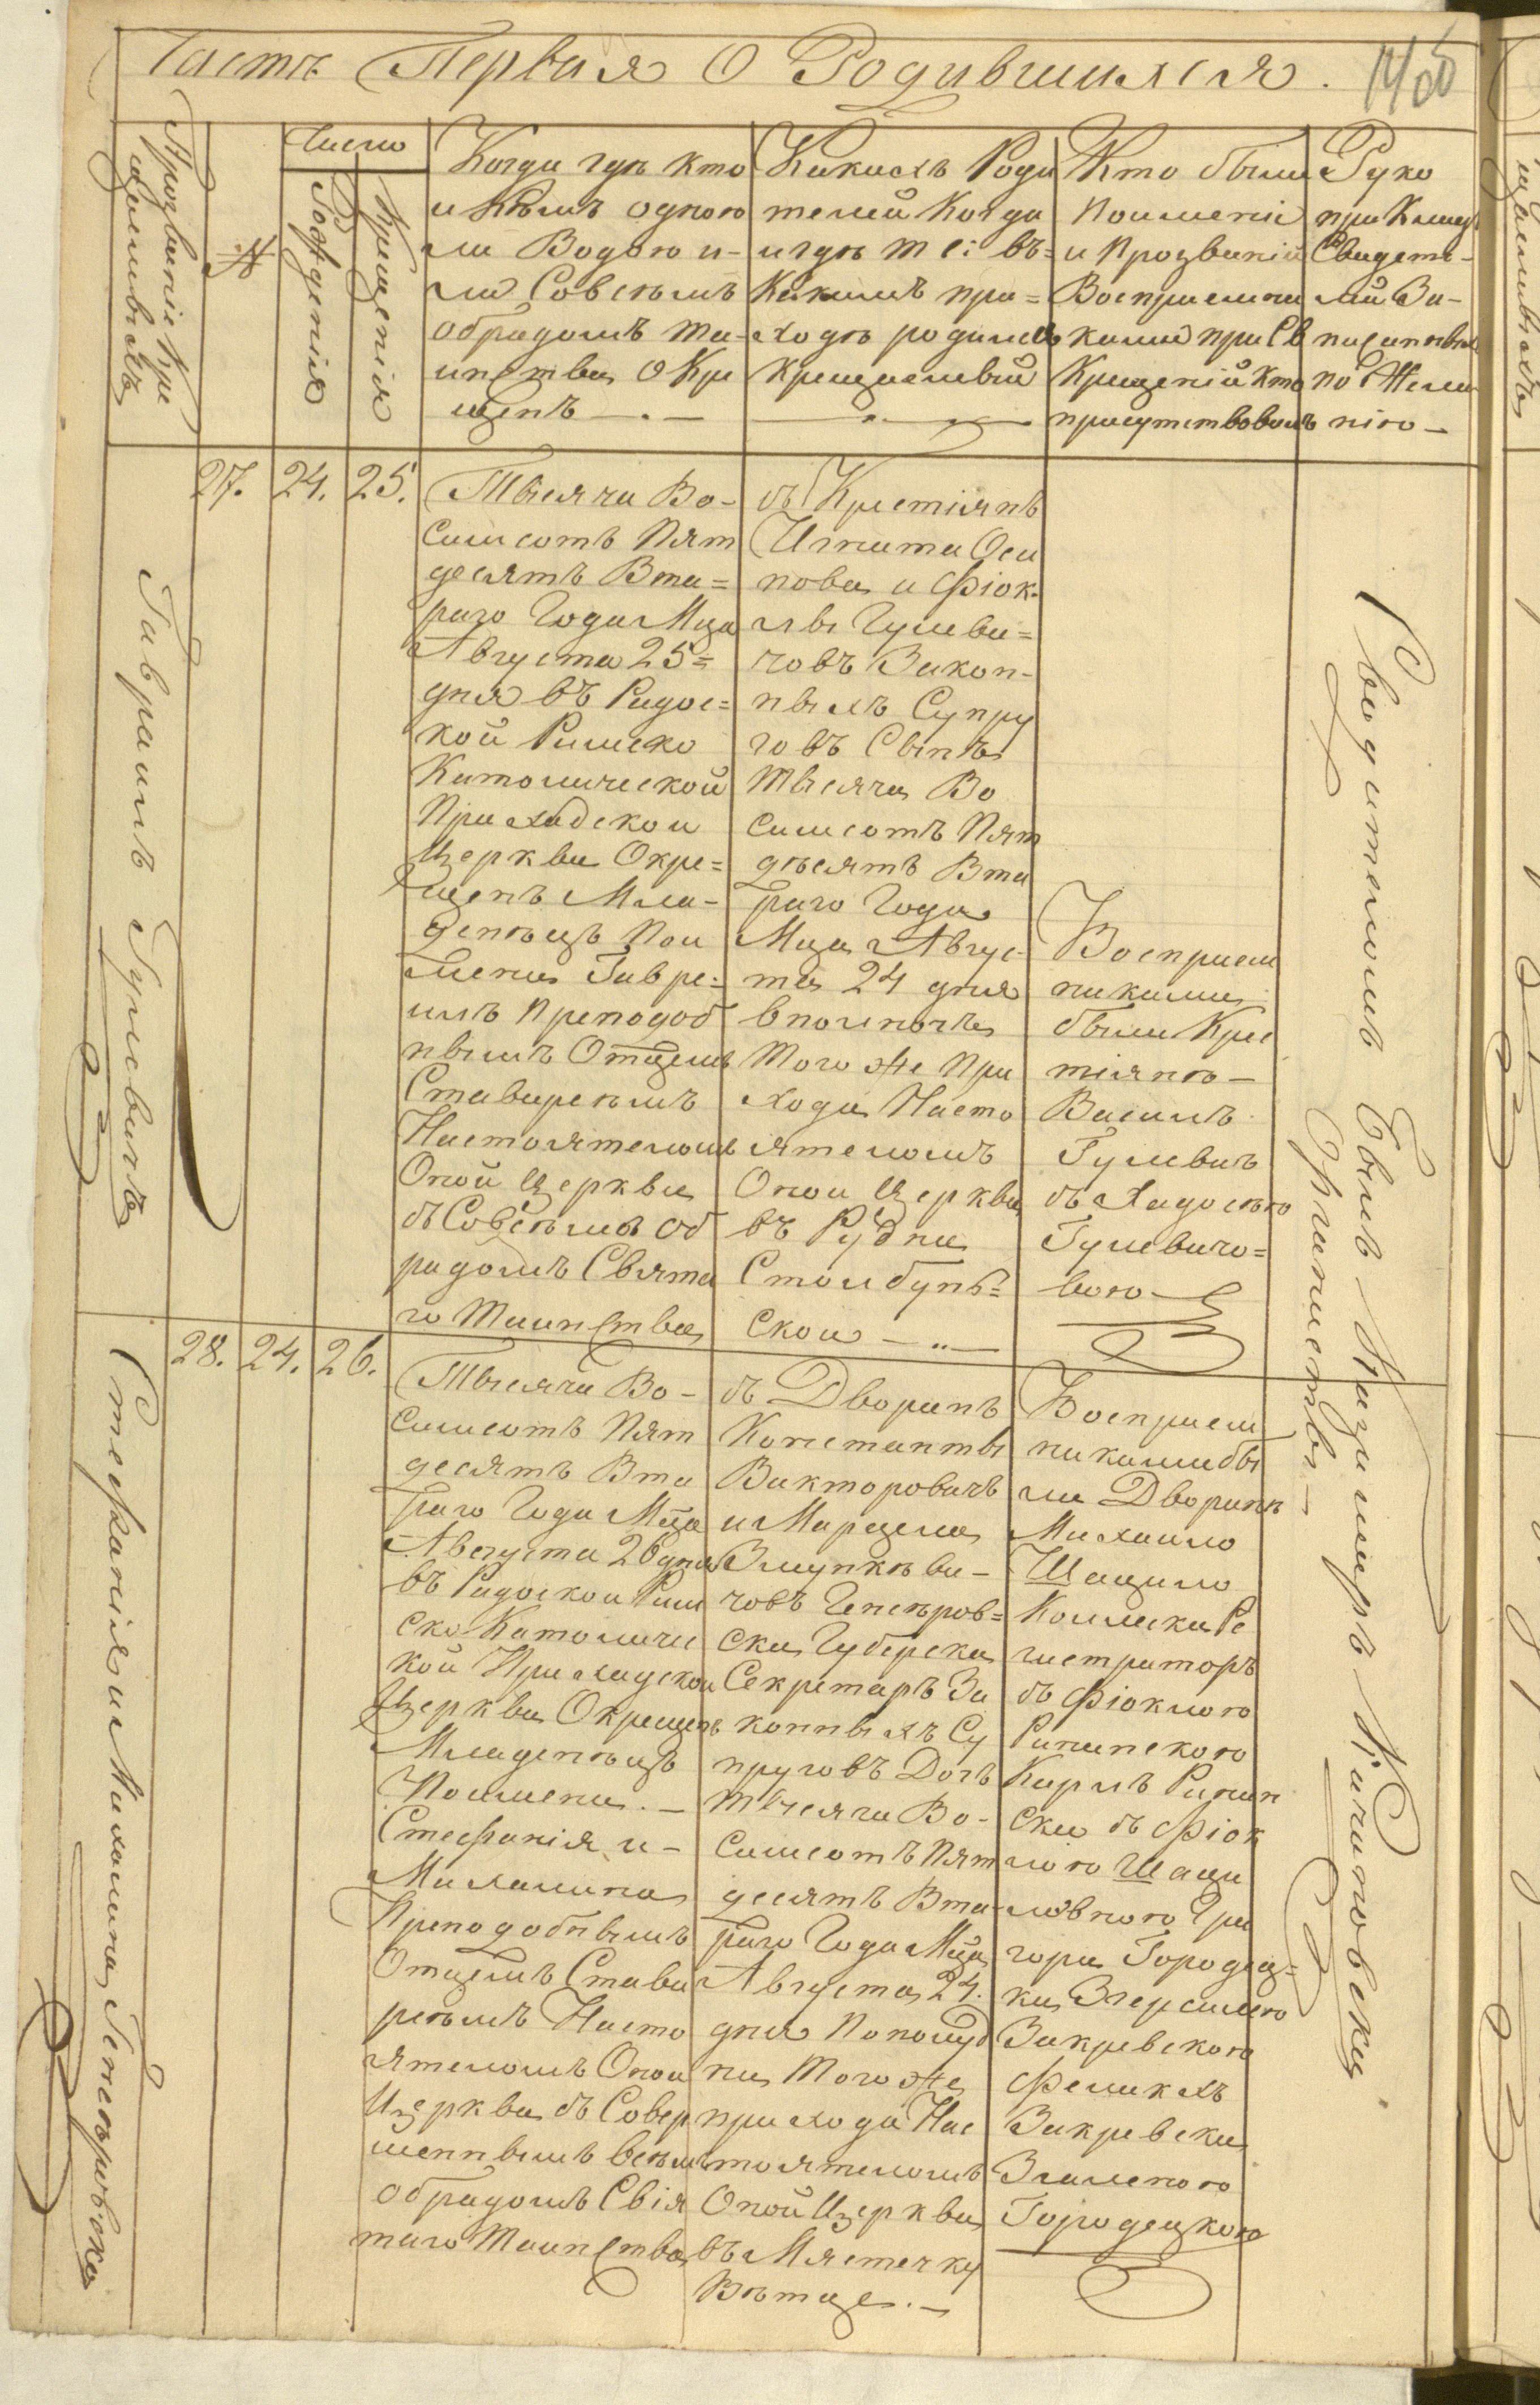 Часть Первая О Родившихся.
Прозваніе Кре
щаемыхъ
№
Число
Рожденія
Крещенія
Когда гдѣ Кто
и Кѣмъ одною
ли Водою и-
ли Совсѣмъ
обрадомъ та-
инства О Кре
щенъ —
Какихъ Роди
телей Когда
и гдѣ т е: въ=
Какимъ при=
ходѣ родился
Крещаемый
Кто были
По имени
и Прозваній
Воспріемни
ками при Св
Крещеній Кто
присутствовалъ
Руко
при Крещ
Свидете-
лей За-
писанныя
по Жела
нію —
27.
24.
25.
Гавраилъ Гулевичъ
Тысячи Во-
симсотъ Пят
десятъ Вта=
раго Года Мца
Августа 25=
дня въ Радос=
кой Римско
Католической
Приходской
Церкви Окре=
щенъ Мла-
денѣцъ Пои
мени Гавре=
илъ Преподоб
нымъ Отцемъ
Ставирѣмъ
Настоятелемъ
Оной Церкви
съ Совсѣмъ об
радомъ Свята
го Таинства
съ Крестіянъ
Игната Оси
пова и Фіок-
лы Гулеви=
човъ Закон-
ныхъ Супру
говъ Сынъ
Тысячи Во
симсотъ Пят
дѣсятъ Вта
раго Года
Мца Авгус-
та 24 дня
вполночъ
Того же При
хода Насто
ятеломъ
Оной Церкви
въ Рудни
Столбунъ=
ской —
Воспріем
никами
были Крес
тіянѣ —
Василъ
Гулевичъ
съ Хадосѣю
Гулевичо=
вою
28.
24.
26.
Стефанія и Михалина Генѣровска
Тысячи Во-
симсотъ Пят
десятъ Вта
раго Года Мца
Августа 26 дня
въ Радоской Рим
ско Католичес
кой Приходской
Церкви Окрещенъ
Младенѣцъ
Поимени. —
Стефанія и —
Михалина
Преподобнымъ
Отцемъ Стави
рѣмъ Насто
ятеломъ Оной
Церкви съ Совер
шеннымъ всѣмъ
обрадомъ Свія
таго Таинства
съ Дворанъ
Константы
Викторовичъ
и Марцела
Змункѣви-
човъ Генѣров=
ски Губерска
Секретаръ За
конныхъ Су
пруговъ Дочъ
Тысячи Во-
симсотъ Пят
десятъ Вта-
раго Года Мца
Августа 24.
дня Пополуд
ни Того же
прихода Нас
тоятеломъ
Оной Церкви
въ Мястечку
Вѣтце. —
Воспріем
никами бы
ли Дворанѣ
Михаило
Шацило
Коллеска Ре
гистраторъ
съ Фіоклою
Рипинскою
Карлъ Рипин
ски съ Фіок
лою Шаци
ловною Гри
гори Городец=
ки
Закревскою
Феликхъ
Закревски
Городецкою